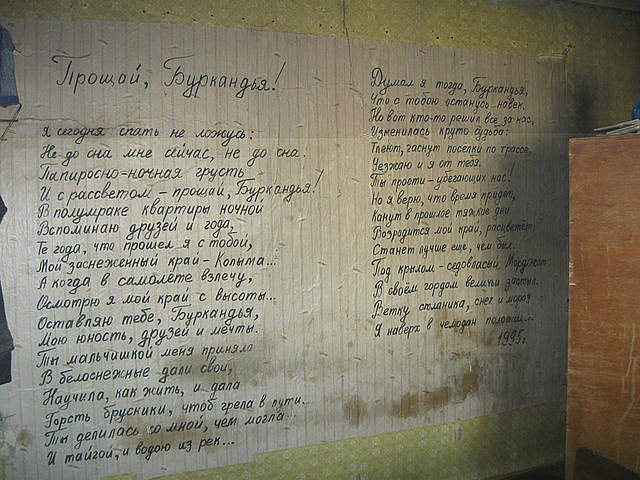 Прощай, Буркандья!
Я сегодня спать не ложусь:
Не до сна мне сейчас, не до сна.
Папиросно-ночная грусть
И с рассветом – прощай, Буркандья!
В полумраке квартиры ночной
Вспоминаю друзей и года,
Те года, что прошел я с тобой,
Мой заснеженный край – Колыма...
А когда в самолёте взлечу,
Осмотрю я мой край с высоты...
Оставляю тебе, Буркандья,
Мою юность, друзей и мечты.
Ты мальчишкой меня приняла
В белоснежные дали свои,
Научила, как жить, и дала
Горсть брусники, чтоб грела в пути...
Ты делилась со мной, чем могла
И тайгой, и водою из рек...
Думал я тогда, Буркандья,
Что с тобою останусь навек.
Но вот кто-то решил все за нас,
Изменилась круто судьба:
Тлеют, гаснут поселки по трассе,
Уезжаю и я от тебя.
Ты прости – убегающих нас!
Но я верю, что время придет,
Канут в прошлое тяжкие дни
Возродится мой край, расцветет,
Станет лучше еще, чем был.
Под крылом – седовласый Морджот
В своём гордом величьи застыл.
Ветку стланика, снег и мороз
Я наверх в чемодан положил...
1995г.